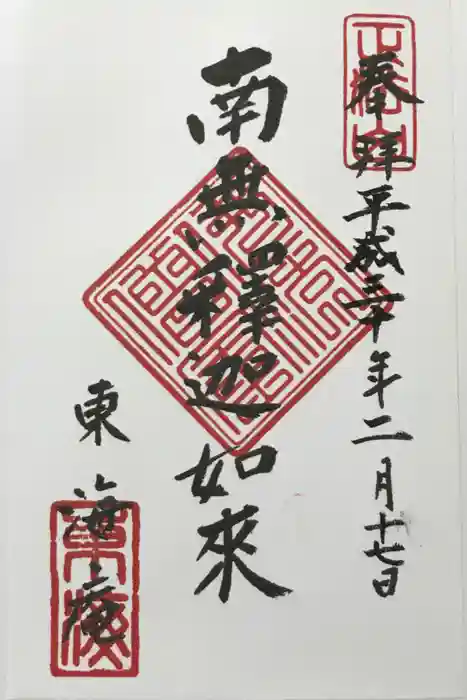 奉拜 平成三十年二月十七日
南無釋迦如來
東海庵